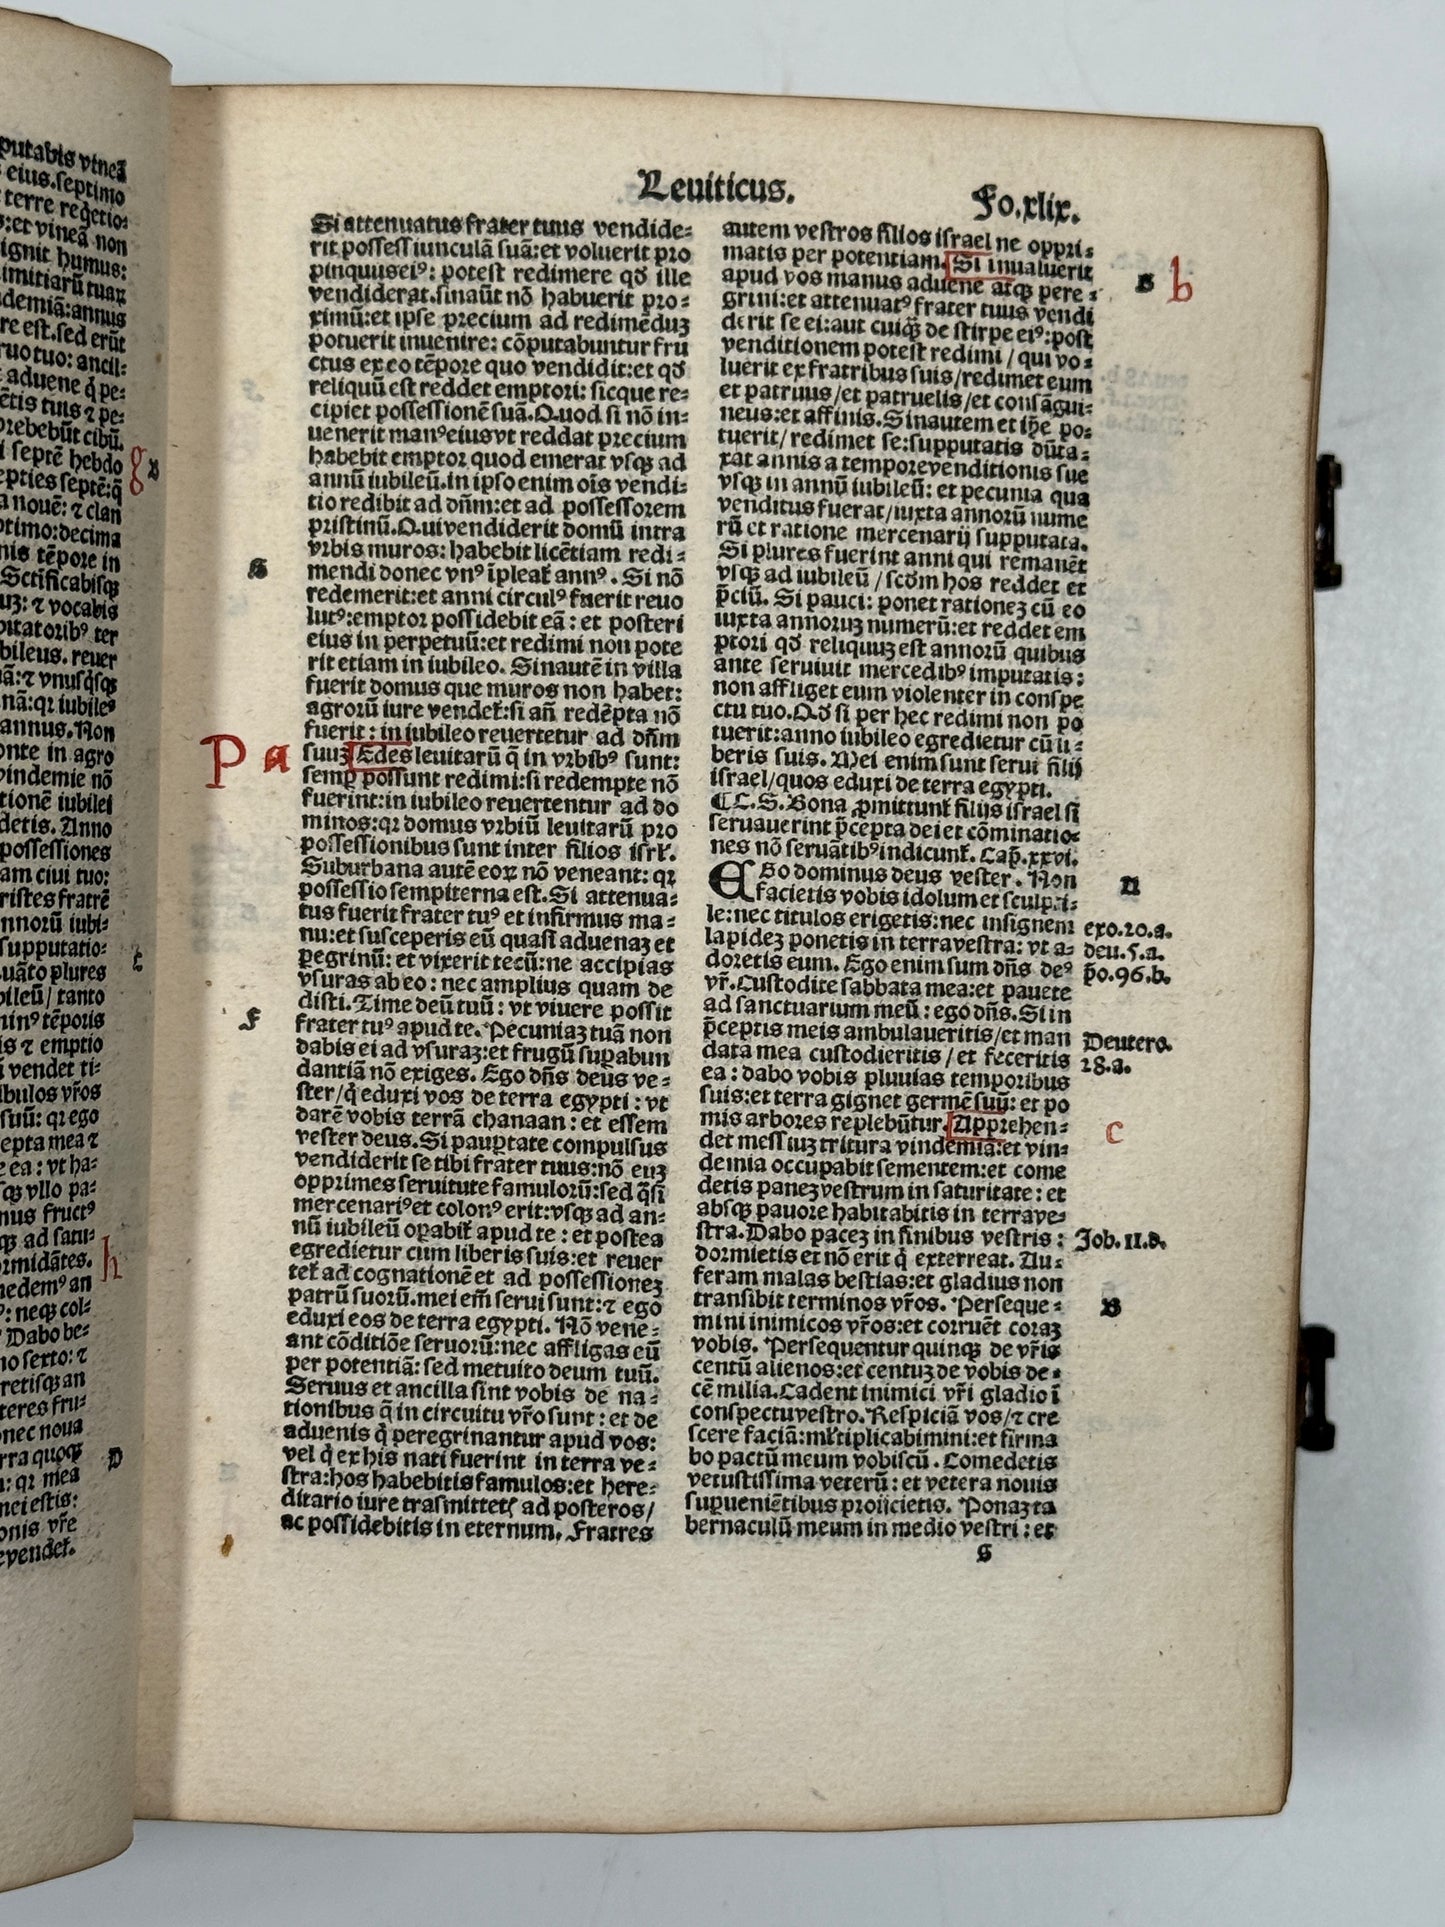 putabis vineā
eius.septimo
terre reqetio:
:et vineā non
ignit humus:
imitiarū tuaꝝ
demiā:annus
re est.sed erūt
ruo tuo: ancil:
aduene q̄ pe:
ētis tuis ⁊ pe:
prebebūt cibū.
septē hebdo
epties septē:q̄
a nouē: ⁊ clan
ptimo:decima
nis tēpore in
Sctificabisqꝫ
uꝫ: ⁊ vocabis
bitatoribꝰ ter
bileus. reuer
ā:⁊ vnusq̄sqꝫ
nā:qꝛ iubileꝰ
annus.Non
onte in agro
vindemie nō
tionē iubilei
detis. Anno
possessiones
am ciui tuo:
ristes fratrē
nnorū iubi:
supputatio:
uāto plures
bileū/ tanto
ninꝰ tēporis
is ⁊ emptio
vendet ti:
ibulos vr̄os
suū: qꝛ ego
epta mea ⁊
ea: vt ha:
sqꝫ vllo pa:
nus fructꝰ
qꝫ ad satu:
ormidātes.
nedemꝰ an
: neqꝫ col:
Dabo be:
no sexto: ⁊
retisqꝫ an
teres fru:
nec noua
rra quoqꝫ
: qꝛ mea
nei estis:
onis vr̄e
g B
E
h
D
Leuiticus.
Fo.xlix.
Si attenuatus frater tuus vendide:
rit possessiunculā suā:et voluerit pro
pinquus eiꝰ: potest redimere qḋ ille
vendiderat.sinaūt nō habuerit pro:
ximū:et ipse precium ad redimēduꝫ
potuerit inuenire: cōputabuntur fru
ctus ex eo tēpore quo vendidit:et qḋ
reliquū est reddet emptori: sicque re:
cipiet possessionē suā.Quod si nō in:
uenerit manꝰ eius vt reddat precium
habebit emptor quod emerat vsqꝫ ad
annū iubileū.in ipso enim oīs vendi:
tio redibit ad dn̄m:et ad possessorem
pristinū.Qui vendiderit domū intra
vrbis muros: habebit licētiam redi:
mendi donec vnꝰ īpleat̄ annꝰ. Si nō
redemerit:et anni circulꝰ fuerit reuo
lutꝰ:emptor possidebit eā: et posteri
eius in perpetuū:et redimi non pote
rit etiam in iubileo. Sinautē in villa
fuerit domus que muros non habet:
agrorū iure vendet̄:si añ redēpta nō
fuerit: in iubileo reuertetur ad dn̄m
suuꝫ Edes leuitarū q̄ in vrbibꝰ sunt:
semꝑ possunt redimi:si redempte nō
fuerint:in iubileo reuertentur ad do
minos:qꝛ domus vrbiū leuitarū pro
possessionibus sunt inter filios isrl̄.
Suburbana autē eoꝝ nō veneant: qꝛ
possessio sempiterna est.Si attenua:
tus fuerit frater tuꝰ et infirmus ma:
nu:et susceperis eū quasi aduenaꝫ et
ꝑegrinū: et vixerit tecū:ne accipias
vsuras ab eo: nec amplius quam de
disti.Time deū tuū: vt viuere possit
frater tuꝰ apud te. Pecuniaꝫ tuā non
dabis ei ad vsuraꝫ:et frugū suꝑabun
dantiā nō exiges. Ego dn̄s deus ve:
ster/q̇ eduxi vos de terra egypti: vt
darē vobis terrā chanaan: et essem
vester deus.Si pauꝑtate compulsus
vendiderit se tibi frater tuus:nō euꝫ
opprimes seruitute famulorū:sed q̄si
mercenariꝰ et colonꝰ erit:vsqꝫ ad an:
nū iubileū oꝑabit̄ apud te: et postea
egredietur cum liberis suis:et reuer
tet̄ ad cognationē et ad possessioneꝫ
patrū suorū.mei em̄ serui sunt:⁊ ego
eduxi eos de terra egypti. Nō vene:
ant cōditiōe seruorū:nec affligas eū
per potentiā: sed metuito deum tuū.
Seruus et ancilla sint vobis de na:
tionibus q̄ in circuitu vr̄o sunt: et de
aduenis q̇ peregrinantur apud vos:
vel q̇ ex his nati fuerint in terra ve:
stra:hos habebitis famulos:et here:
ditario iure trasmittetꝭ ad posteros/
ac possidebitis in eternum. Fratres
S
P a
F
autem vestros filios israel ne oppri:
matis per potentiam. Si inualuerit
apud vos manus aduene atqꝫ pere:
grini:et attenuatꝰ frater tuus vendi
derit se ei:aut cuiqꝫ de stirpe eiꝰ:post
venditionem potest redimi/ qui vo:
luerit ex fratribus suis/redimet eum
et patruus/et patruelis/et consāgui:
neus:et affinis.Sinautem et ip̄e po:
tuerit/ redimet se:supputatis dūta:
xat annis a tempore venditionis sue
vsqꝫ in annū iubileū: et pecunia qua
venditus fuerat/iuxta annorū nume
rū et ratione mercenarij supputata.
Si plures fuerint anni qui remanēt
vsqꝫ ad iubileū/scḋm hos reddet et
p̄ciū. Si pauci: ponet rationeꝫ cū eo
iuxta annoruꝫ numerū:et reddet em
ptori qḋ reliquuꝫ est annorū quibus
ante seruiuit mercedibꝰ imputatis:
non affliget eum violenter in conspe
ctu tuo.Qḋ si per hec redimi non po
tuerit:anno iubileo egredietur cū li:
beris suis. Mei enim sunt serui filij
israel/quos eduxi de terra egypti.
¶ C.S. Bona ꝓmittunt̄ filijs israel si
seruauerint p̄cepta dei et cōminatio:
nes nō seruātibꝰ indicunt̄. Cap̄.xxvi.
EGo dominus deus vester. Non
facietis vobis idolum et sculpti:
le:nec titulos erigetis:nec insignem
lapideꝫ ponetis in terra vestra: vt a:
doretis eum. Ego enim sum dn̄s deꝰ
vr̄.Custodite sabbata mea:et pauete
ad sanctuarium meū: ego dn̄s.Si in
p̄ceptis meis ambulaueritis/et man
data mea custodieritis/ et feceritis
ea: dabo vobis pluuias temporibus
suis:et terra gignet germē suū: et po
mis arbores replebūtur. Apprehen:
det messiuꝫ tritura vindemiā:et vin:
demia occupabit sementem:et come
detis paneꝫ vestrum in saturitate: et
absqꝫ pauore habitabitis in terra ve:
stra.Dabo paceꝫ in finibus vestris:
dormietis et nō erit q̇ exterreat. Au:
feram malas bestias:et gladius non
transibit terminos vr̄os. Perseque:
mini inimicos vr̄os:et corruēt coraꝫ
vobis. Persequentur quinqꝫ de vr̄is
centū alienos:et centuꝫ de vobis de:
cē milia.Cadent inimici vr̄i gladio ī
conspectu vestro.Respiciā vos/⁊ cre
scere faciā:ml̄tiplicabimini:et firma
bo pactū meum vobiscū. Comedetis
vetustissima veterū: et vetera nouis
suꝑuenientibus proijcietis. Ponaꝫ ta
bernaculū meum in medio vestri: et
G
b
A
exo.20.a.
deu.5.a.
p̄o.96.b.
Deutero.
28.a.
c
Job.11.d.
B